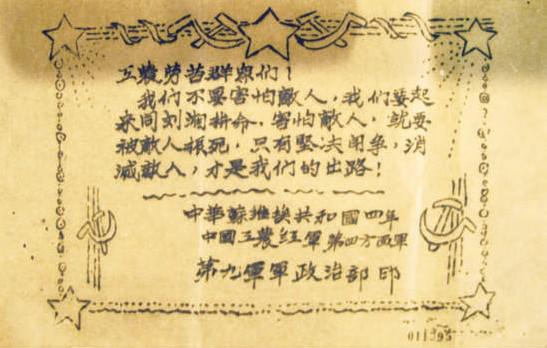 工農勞苦群衆們！
我们不要害怕敵人，我们要起
來同刘湘拼命，害怕敵人，就要
被敵人殺死，只有堅决闘争，消
滅敵人，才是我们的出路！
中华蘇維埃共和國四年
中國工農红軍第四方面軍
第九軍軍政治部 印
011395